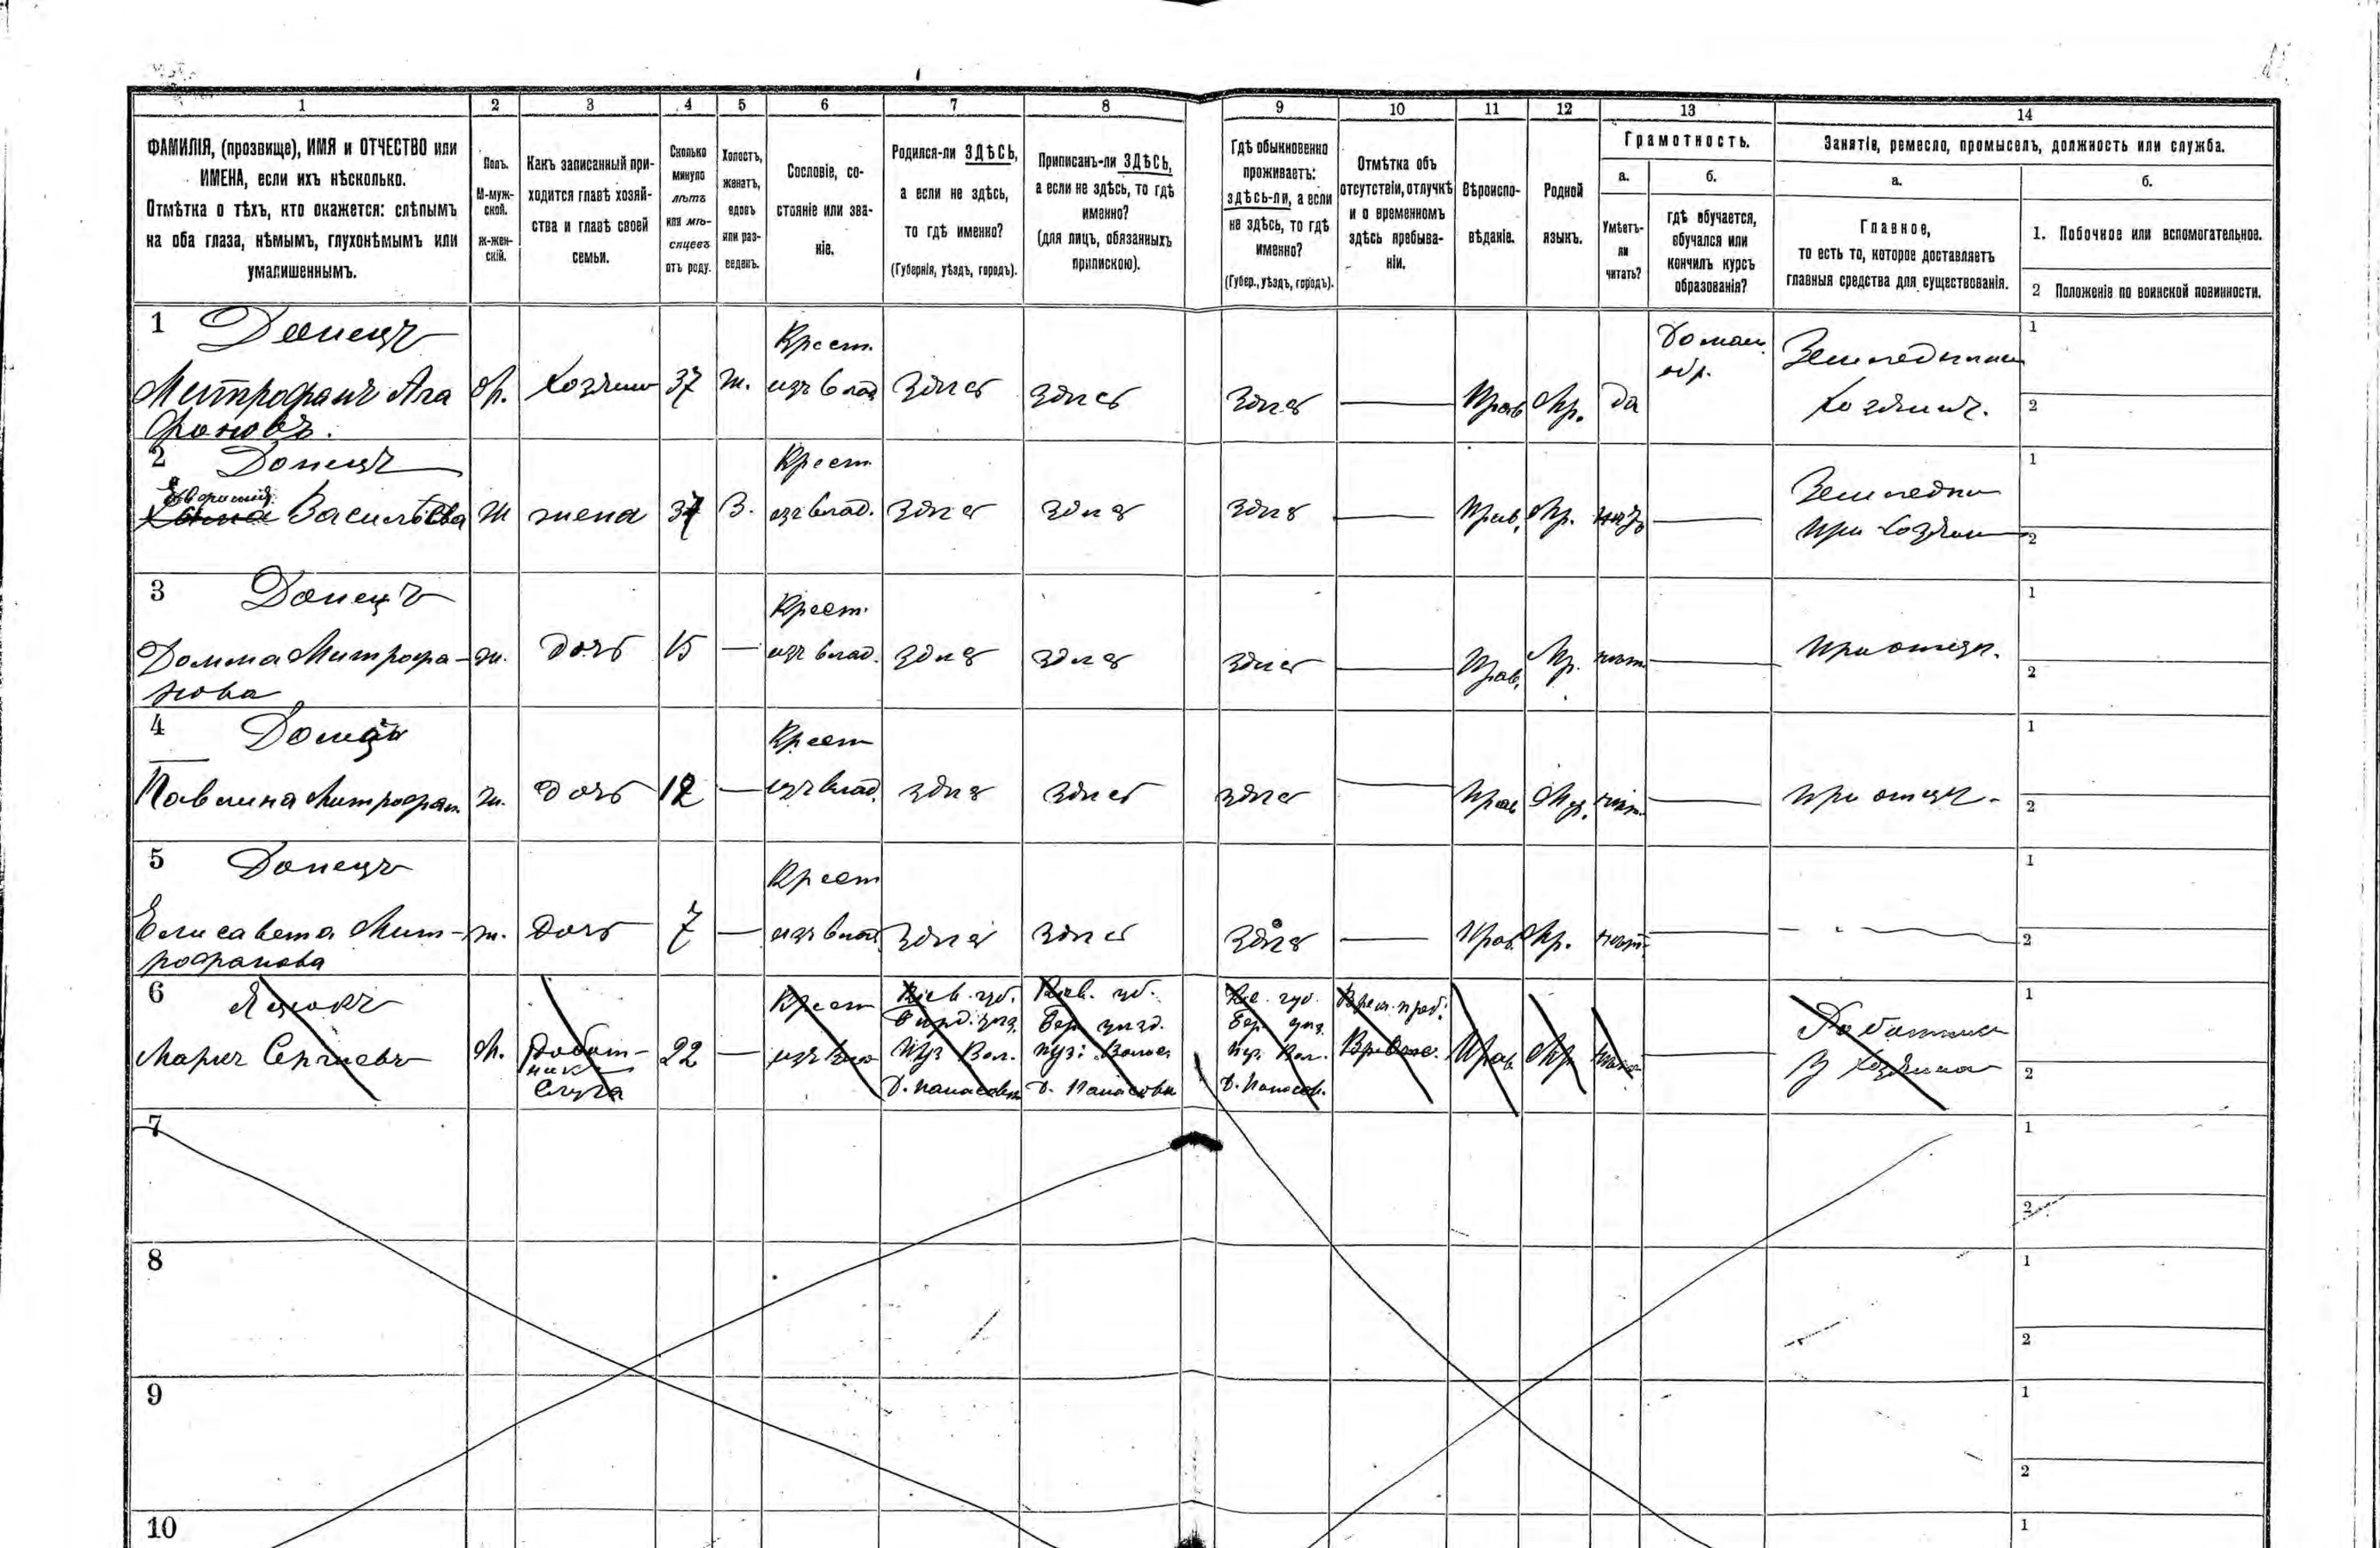 1 2 3 4 5 6 7 8 9 10 11 12 13 14
ФАМИЛІЯ, (прозвище), ИМЯ и ОТЧЕСТВО или
ИМЕНА, если ихъ нѣсколько.
Отмѣтка о тѣхъ, кто окажется: слѣпымъ
на оба глаза, нѣмымъ, глухонѣмымъ или
умалишеннымъ.
Полъ.
М-муж-
ской.
Ж-жен-
скій.
Какъ записанный при-
ходится главѣ хозяй-
ства и главѣ своей
семьи.
Сколько
минуло
лѣтъ
или мѣ-
сяцевъ
отъ роду.
Холостъ,
женатъ,
вдовъ
или раз-
веденъ.
Сословіе, со-
стояніе или зва-
ніе.
Родился-ли ЗДѢСЬ,
а если не здѣсь,
то гдѣ именно?
(Губернія, уѣздъ, городъ).
Приписанъ-ли ЗДѢСЬ,
а если не здѣсь, то гдѣ
именно?
(для лицъ, обязанныхъ
припискою).
Гдѣ обыкновенно
проживаетъ:
ЗДѢСЬ-ЛИ, а если
не здѣсь, то гдѣ
именно?
(Губер., уѣздъ, городъ).
Отмѣтка объ
отсутствіи, отлучкѣ
и о временномъ
здѣсь пребыва-
ніи.
Вѣроиспо-
вѣданіе.
Родной
языкъ.
Грамотность.
а.
Умѣетъ-
ли
читать?
б.
гдѣ обучается,
обучался или
кончилъ курсъ
образованія?
Занятіе, ремесло, промыселъ, должность или служба.
а.
Главное,
то есть то, которое доставляетъ
главныя средства для существованія.
б.
1. Побочное или вспомогательное.
2 Положеніе по воинской повинности.
1 Донецъ Крест. Домаш. Земледѣлец 1
Митрофанъ Ага м. Хозяин 37 ж. изъ влад здѣсь здѣсь здѣсь — Прав Мр. да обр. Хозяинъ. 2
фоновъ.
2 Донецъ Крест. Земледѣл 1
Васильева ж жена 37 З. изъ влад. здѣсь здѣсь здѣсь — Прав. Мр. нѣтъ — При хозяин 2
3 Донецъ Крест. 1
Домна Митрофа- ж. дочь 15 — изъ влад. здѣсь здѣсь здѣсь — Прав. Мр. нѣт — При отцѣ. 2
нова
4 Донецъ Крест 1
Павлина Митрофан. ж. дочь 12 — изъ влад. здѣсь здѣсь здѣсь — Прав Мр. нѣт. — при отцѣ. 2
5 Донецъ Крест 1
Елисавета Мит- ж. дочь 7 — изъ влад здѣсь здѣсь здѣсь — Прав. Мр. нѣт. — 2
рофанова
6 Крест Кіев. губ. Кіев. губ. Кіе. губ. Врем. преб. 1
Берд. уѣз. Бер. уѣзд. Бер. уѣз. Работник
Сергѣевъ м. Работ- 22 — Пуз Вол. Пуз. Волос Пуз. Вол. Прав Мр — У хозяина 2
ник
Слуга Д. Панасовк Д. Панасовка Д. Панасов.
7 1
2
8 1
2
9 1
2
10 1